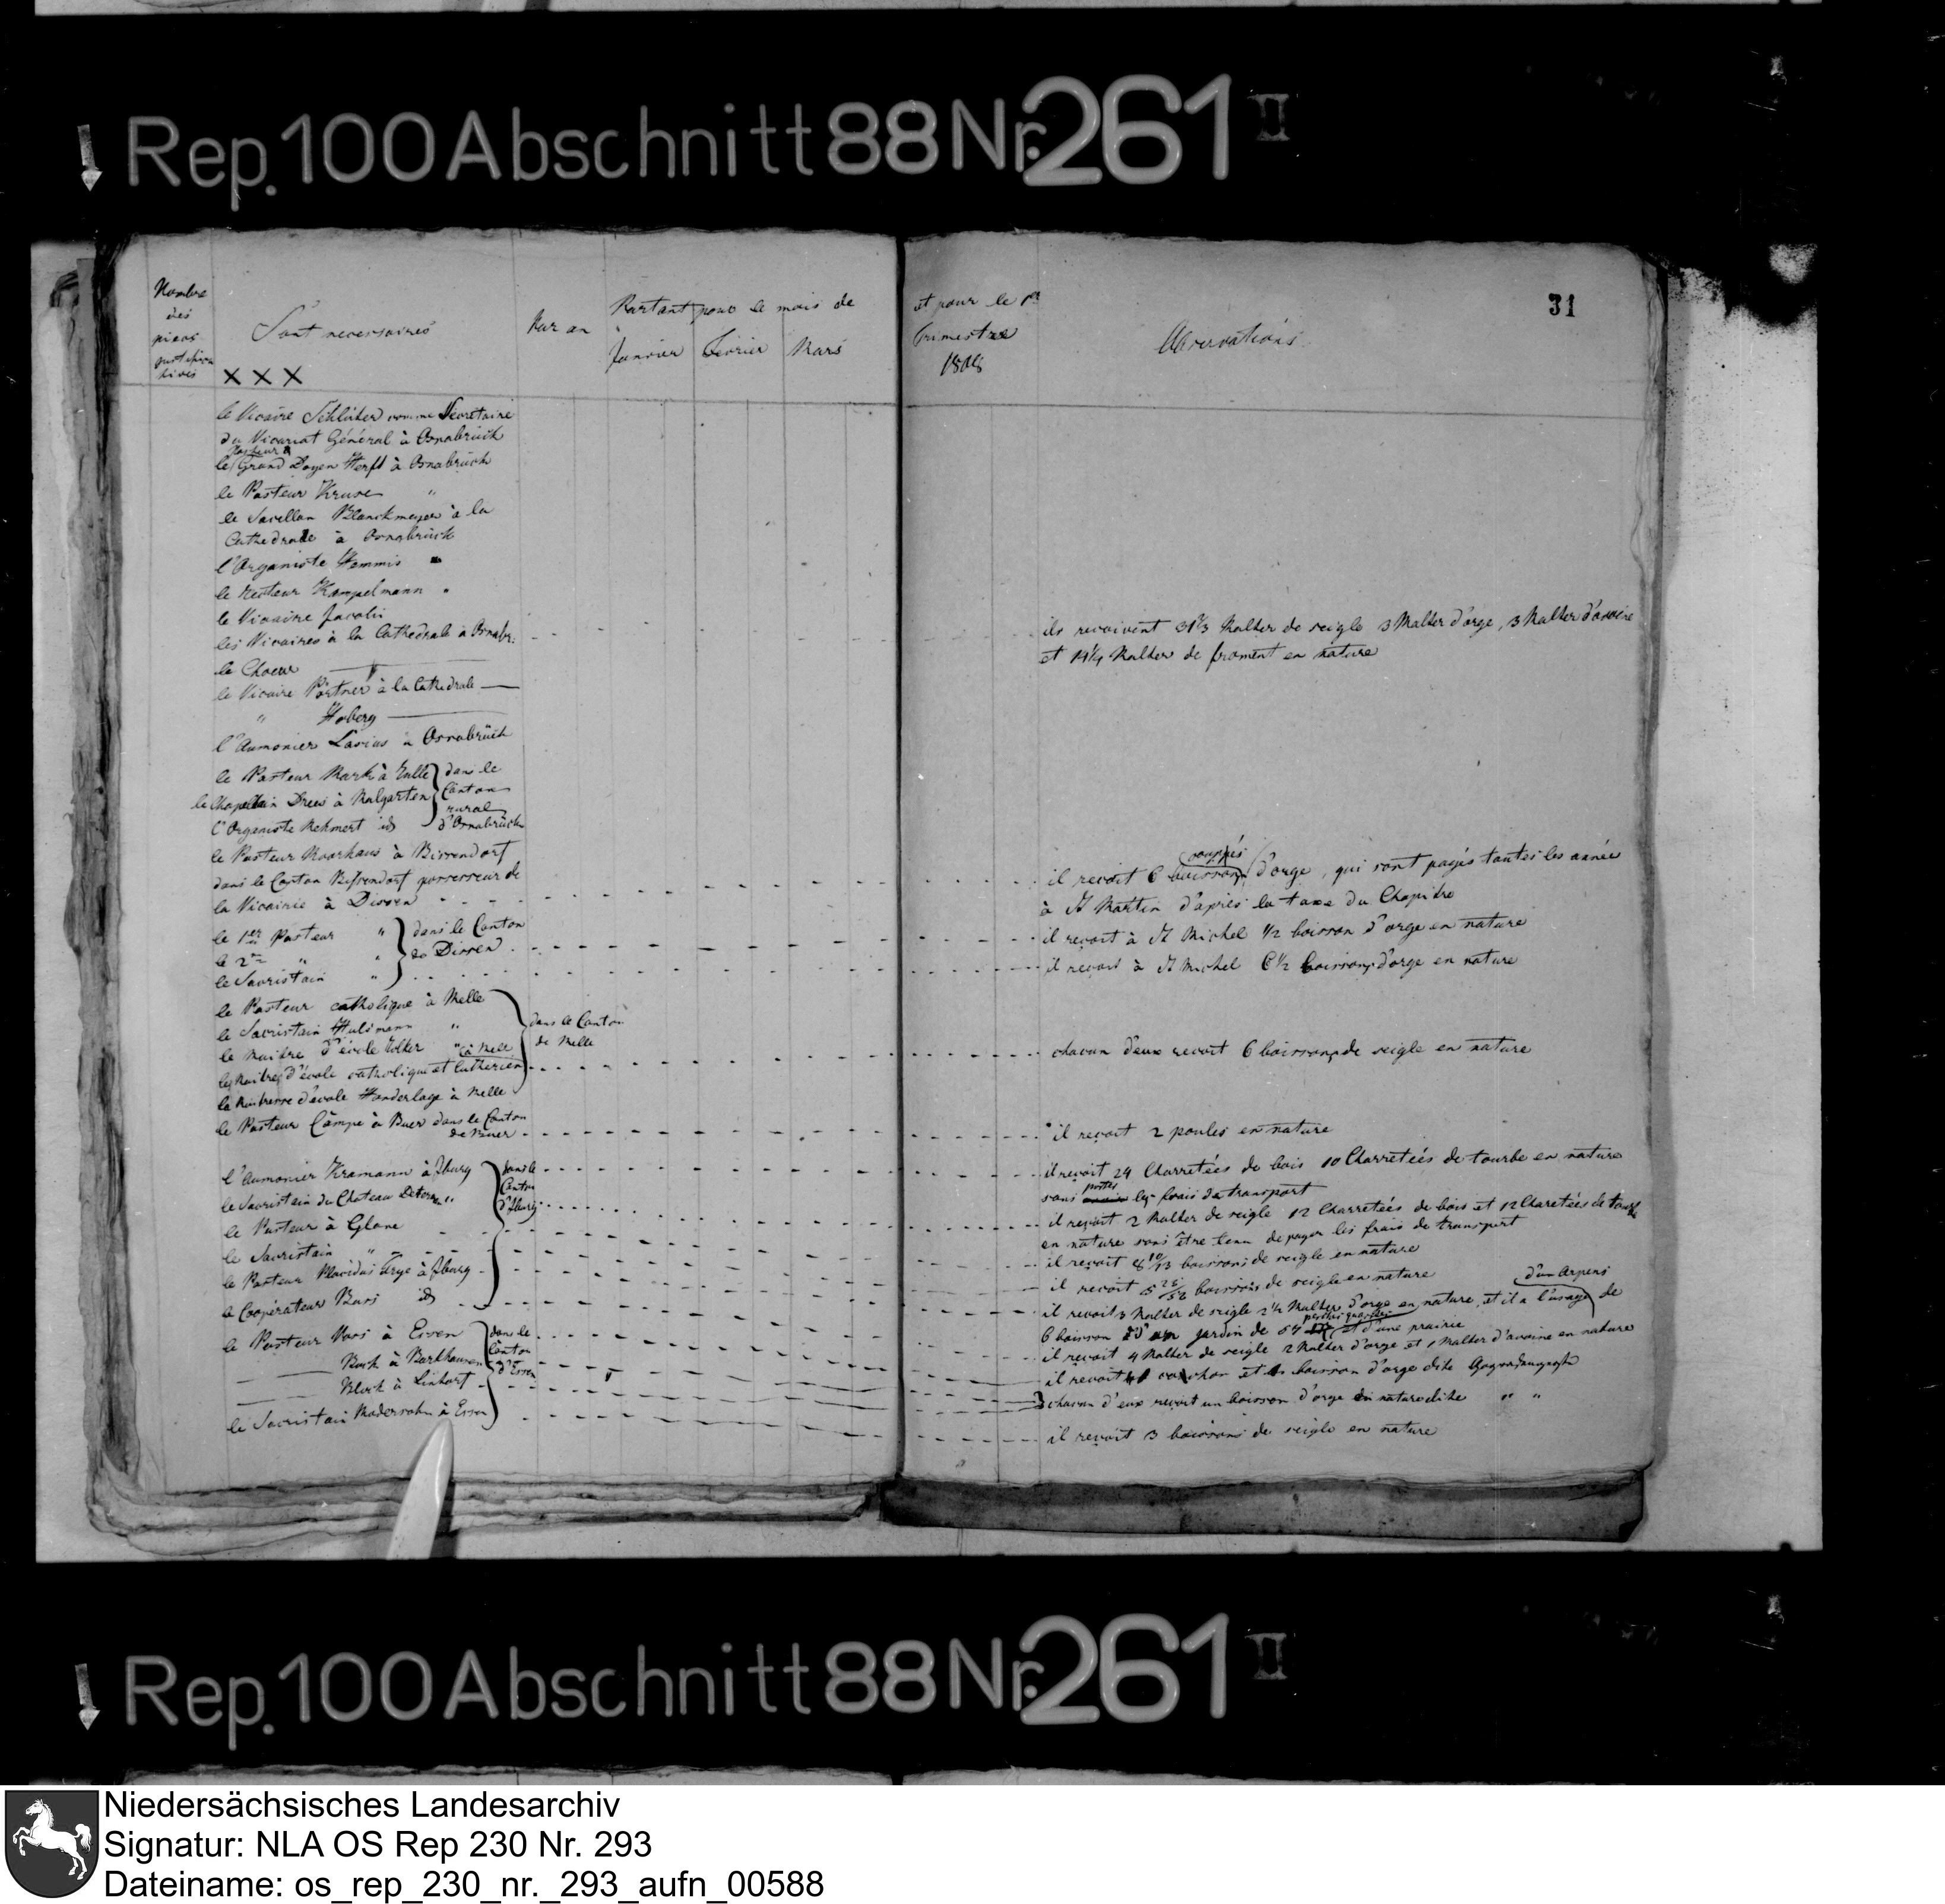 Rep. 100 Abschnitt 88 Nr. 261 II
31
Nombre
des
pieces
justifica
tives
Sont necessaires
X X X
Par an
Partant pour le mois de
Janvier Fevrier Mars
et pour le 1er
trimestre
1808
Observations
le Vicaire Schlüter nommé Secretaire
du Vicariat Général à Osnabrück
Pasteur &
le Grand Doyen Herft à Osnabrück
le Pasteur Kruse "
le Sacellan Blanckmeyer à la
Cathedrale à Osnabrück
l'Organiste Hemmis "
le Recteur Kampelmann "
le Vicaire Jacobi
les Vicaires à la Cathedrale à Osnabr:
ils recoivent 31 2/3 Malter de seigle 3 Malter d'orge, 3 Malter d'avoine
et 14 1/4 Malter de froment en nature
le Choeur
le Vicaire Pörtner à la Cathedrale
" Hoberg
l'Aumonier Lasius à Osnabrück
le Pasteur Mark à Rulle
le Chapelain Drees à Malgarten
l'Organiste Rehmert id
dans le
Canton
rural
d'Osnabrück
le Pasteur Moorhaus à Bissendorf
dans le Canton Bissendorf possesseur de
la Vicairie à Dissen
couppés
il recoit 6 boissons d'orge, qui sont payés toutes les année
à St Martin d'après la taxe du Chapitre
le 1er Pasteur "
le 2me " "
le Sacristain "
dans le Canton
de Dissen
il reçoit à St Michel 1/2 boisson d'orge en nature
il reçoit à St Michel 6 1/2 boissons d'orge en nature
le Pasteur catholique à Melle
le Sacristain Hulsmann "
le Maitre d'école Wilker "
à Melle
les Maitres d'école catholique et lutherien
la Maitresse d'école Handerlage à Melle
dans le Canton
de Melle
chacun d'eux recoit 6 boissons de seigle en nature
le Pasteur Câmpe à Buer dans le Canton
de Buer
il reçoit 2 poules en nature
l'Aumonier Kramann à Jburg
le Sacristain du Chateau "
le Pasteur à Glane
le Sacristain "
le Pasteur Placidus à Jburg
le Coopérateur Buss id
dans le
Canton
d'Jburg
il reçoit 24 Charretées de bois 10 Charretées de tourbe en nature
sans les frais de transport
il reçoit 2 Malter de seigle 12 Charretées de bois et 12 Charetées de tourbe
en nature sans être tenu de payer les frais de transport
il recoit 8 10/13 boissons de seigle en nature
il recoit 5 25/52 boissons de seigle en nature
d'un Arpens
il recoit 3 Malter de seigle 2 1/2 Malter d'orge en nature, et il a l'usage de
6 boisson d'un jardin de 54 et d'une prairie
le Pasteur Voss à Essen
Bock à Barkhausen
Block à Lintorf
le Sacristain Madersohn à Essen
dans le
Canton
d'Essen
il recoit 4 Malter de seigle 2 Malter d'orge et 1 Malter d'avoine en nature
il recoit 1 cochon et 1 boisson d'orge dite
chacun d'eux reçoit un boisson d'orge en nature dite " "
il reçoit 3 boissons de seigle en nature
Rep. 100 Abschnitt 88 Nr. 261 II
Niedersächsisches Landesarchiv
Signatur: NLA OS Rep 230 Nr. 293
Dateiname: os_rep_230_nr._293_aufn_00588